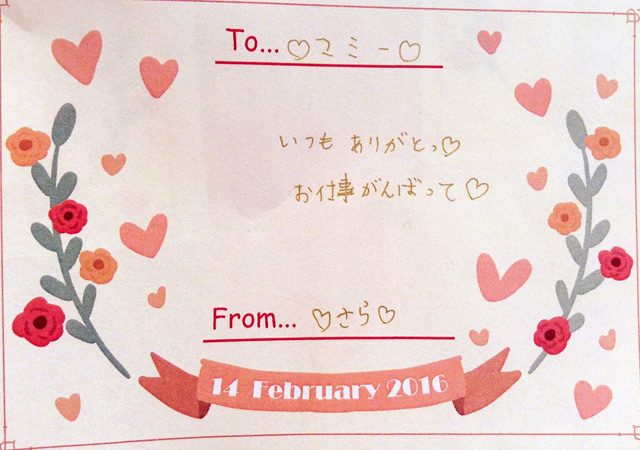 To... ♡マミー♡
いつも ありがとっ♡
お仕事がんばって♡
From... ♡さら♡
14 February 2016